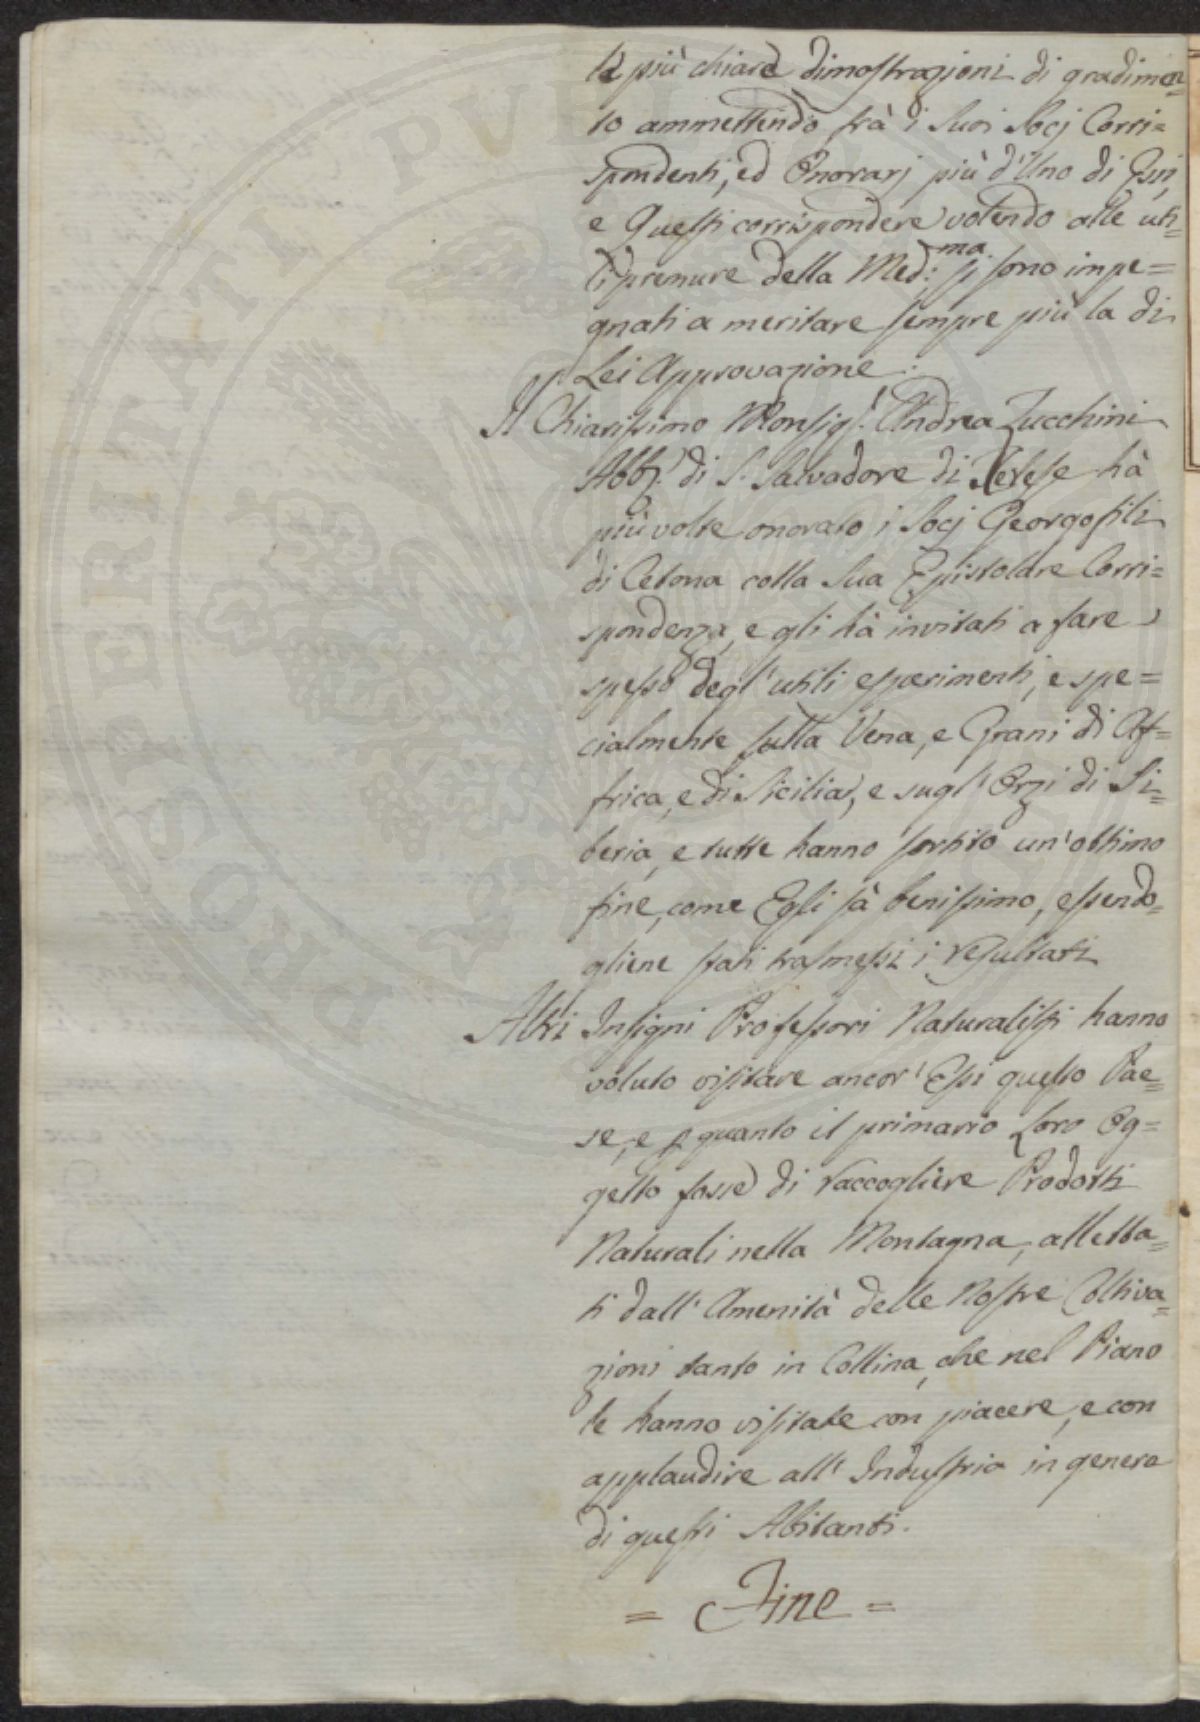 le più chiare dimostrazioni di gradimen=
to ammettendo frà i Suoi Socj Corri=
spondenti, ed Onorarj più d'Uno di Essi,
e Questi corrispondere volendo alle uti=
li premure della Med:ma si sono impe=
gnati a meritare sempre più la di
Lei Approvazione.
Il Chiarissimo Monsig.r Andrea Zucchini
Abb.e di S. Salvadore di hà
più volte onorato i Socj Georgofili
di Cetona colla Sua Epistolare Corri=
spondenza, e gli hà invitati a fare
spesso degl'utili esperimenti, e spe=
cialmente sulla Vena, e Grani di Af=
frica, e di Sicilia, e sugl'Orzi di Si=
beria, e tutte hanno sortito un'ottimo
fine, come Egli sà benissimo, essendo=
gliene stati trasmessi i resultati
Altri Insigni Professori Naturalisti hanno
voluto visitare ancor'Essi questo Pae=
se, e p quanto il primario Loro Og=
getto fosse di raccogliere Prodotti
Naturali nella Montagna, alletta=
ti dall'Amenità delle Nostre Coltiva=
zioni tanto in Collina, che nel Piano
le hanno visitate con piacere, e con
applaudire all'Industria in genere
di questi Abitanti.
= Fine =
PROSPERITATI PVBLICAE